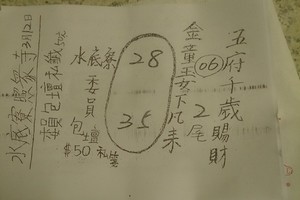 五府千歲賜財
06 2尾
金童玉女下凡来
28
35
水底寮委員包壇
$50
包壇私籤
水底寮 寺3月12日